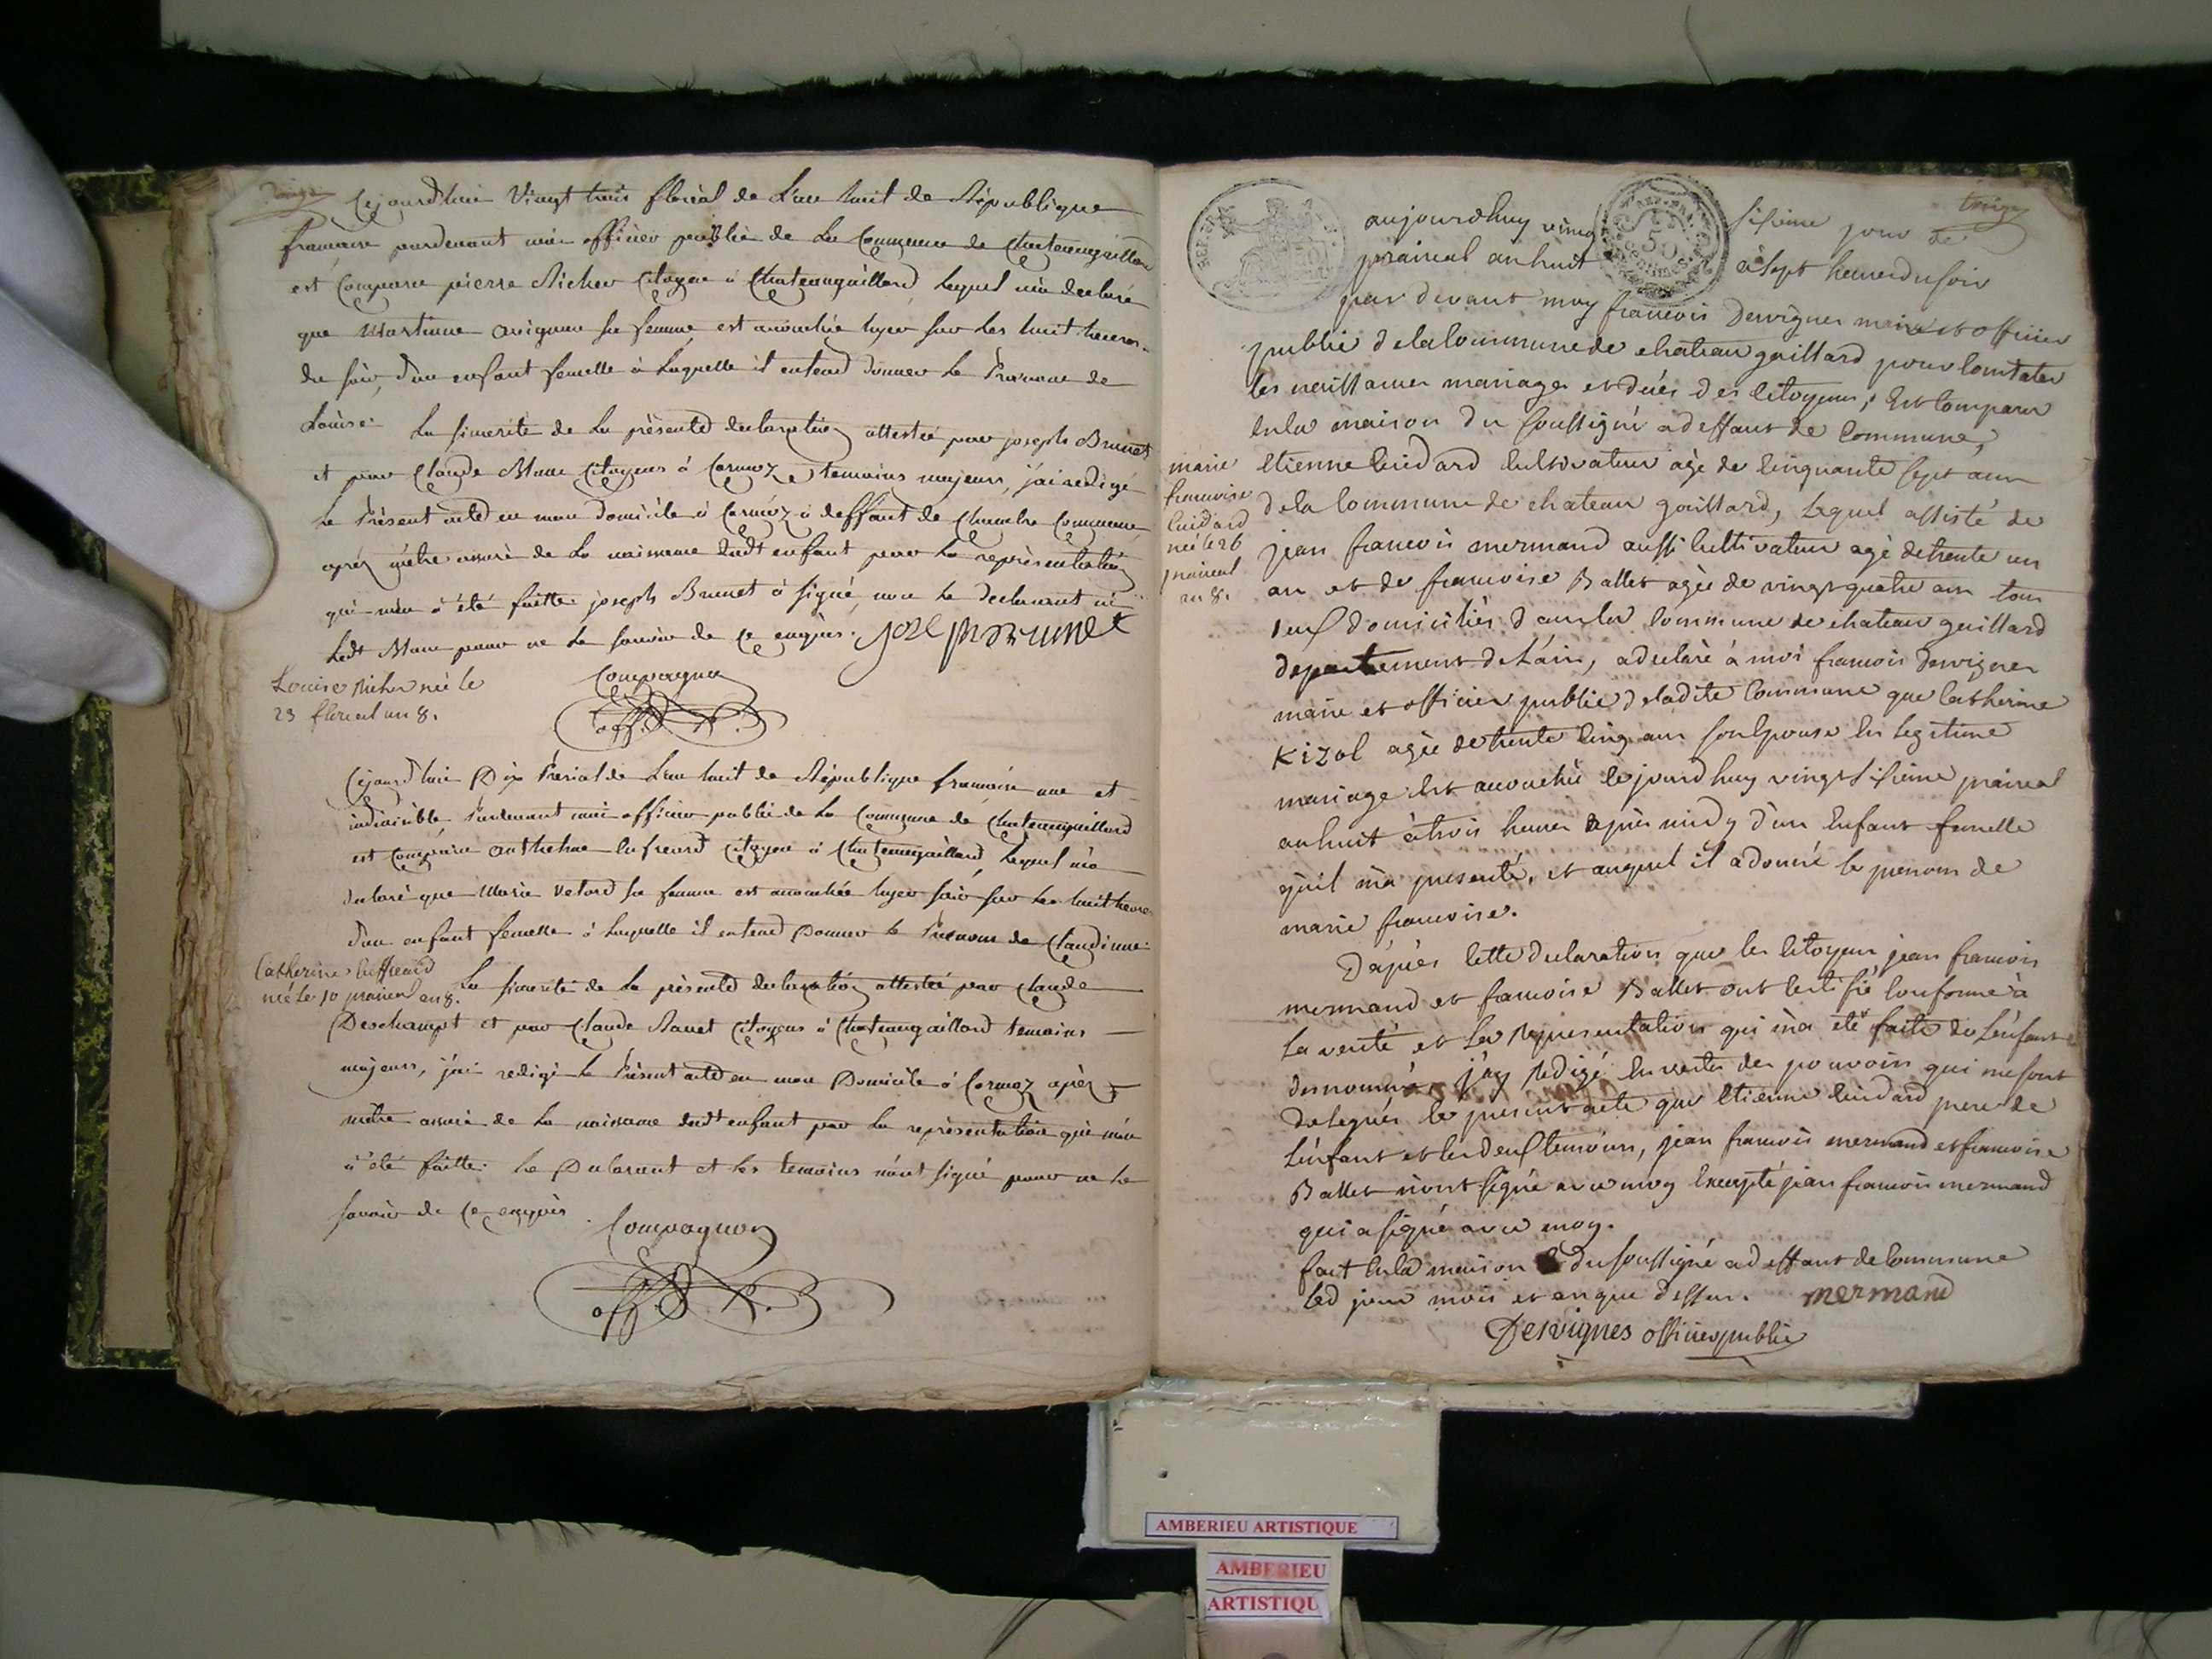 Cejourdhui Vingt trois floréal de L'an huit de République
francaise pardevant moi officier public de La Commune de Chateaugaillard
est Comparu pierre Richer Citoyen à Chateaugaillard, Lequel m'a declaré
que Martinne avignon sa femme, est accouchée hyer sur les huit heures
du soir, d'un enfant femelle à Laquelle il entend donner le Prenom de
Louise. La sincerité de La présente declaration attestée par joseph Brunet
et par Claude Citoyens à Cormoz temoins majeurs, j'ai redigé
Le Présent acte en mon Domicile à Cormoz à deffaut de Chambre Commune
après m'être assuré de La naissance dudt enfant par La représentation
qui m'en à été faitte. joseph Brunet à signé, non le declarant ni
Ledt pour ne Le savoir de ce enquis. Joseph Brunet
Louise Richer née le
23 floreal an 8.
Compagnon
off. P.
Cejourdhui Dix Prerial de L'an huit de République francaise une et
indivisible, Pardevant moi officier public de La Commune de Chateaugaillard
est Comparu anthelme Citoyen à Chateaugaillard, Lequel m'a
declaré que Marie sa femme est accouchée hyer soir sur les huit heures
d'un enfant femelle à Laquelle il entend Donner le Prenom de Claudinne.
Catherine
née le 10 prairial an 8.
La sincerité de La présente declaration attestée par Claude
Deschampt et par Claude Citoyens à Chateaugaillard temoins
majeurs, j'ai redigé Le Présent acte en mon Domicile à Cormoz après
m'être assuré de La naissance dudt enfant par La représentation qui m'en
à été faitte. Le Declarant et les temoins n'ont signé pour ne Le
savoir de ce enquis.
Compagnon
off. P.
treize
REP. FRA.
50
centimes
aujourdhuy vingt sixieme jour de
prairial an huit à sept heures du soir
par devant moy francois Desvignes maire et officier
public de la Commune de chateau gaillard pour Constater
les naissances mariages et décés des Citoyens, Est Comparu
En la maison du soussigné a deffaut de Commune,
Etienne Cuidard Cultivateur agé de Cinquante sept ans
de la Commune de chateau gaillard, Lequel assisté de
marie
francoise
Cuidard
née le 26
prairial
an 8.
jean francois mermand aussi Cultivateur agé de trente un
an et de francoise Ballet agée de vingt quatre ans tous
deux domiciliés dans la Commune de chateau gaillard
departement de L'ain, a declaré à moi francois Desvignes
maire et officier public de ladite Commune que Catherine
Kizol agée de trente Cinq ans son Epouse En legitime
mariage Est accouchée Cejourdhuy vingt sixieme prairial
an huit à trois heures après midy d'un Enfant femelle
qu'il m'a presenté, et auquel il a donné le prenom de
marie francoise.
D'après Cette declaration que les Citoyens jean francois
mermand et francoise Ballet ont Certifié Conforme à
la verité et la representation qui m'a été faite de L'enfant
denommé j'ay redigé En vertu des pouvoirs qui me sont
delegués le present acte que Etienne Cuidard pere de
L'enfant et les deux temoins, jean francois mermand et francoise
Ballet n'ont signé avec moy Excepté jean francois mermand
qui a signé avec moy.
fait En la maison du soussigné a deffaut de Commune
led jour mois et an que dessus. mermand
Desvignes officier public
AMBERIEU ARTISTIQUE
AMBERIEU
ARTISTIQU